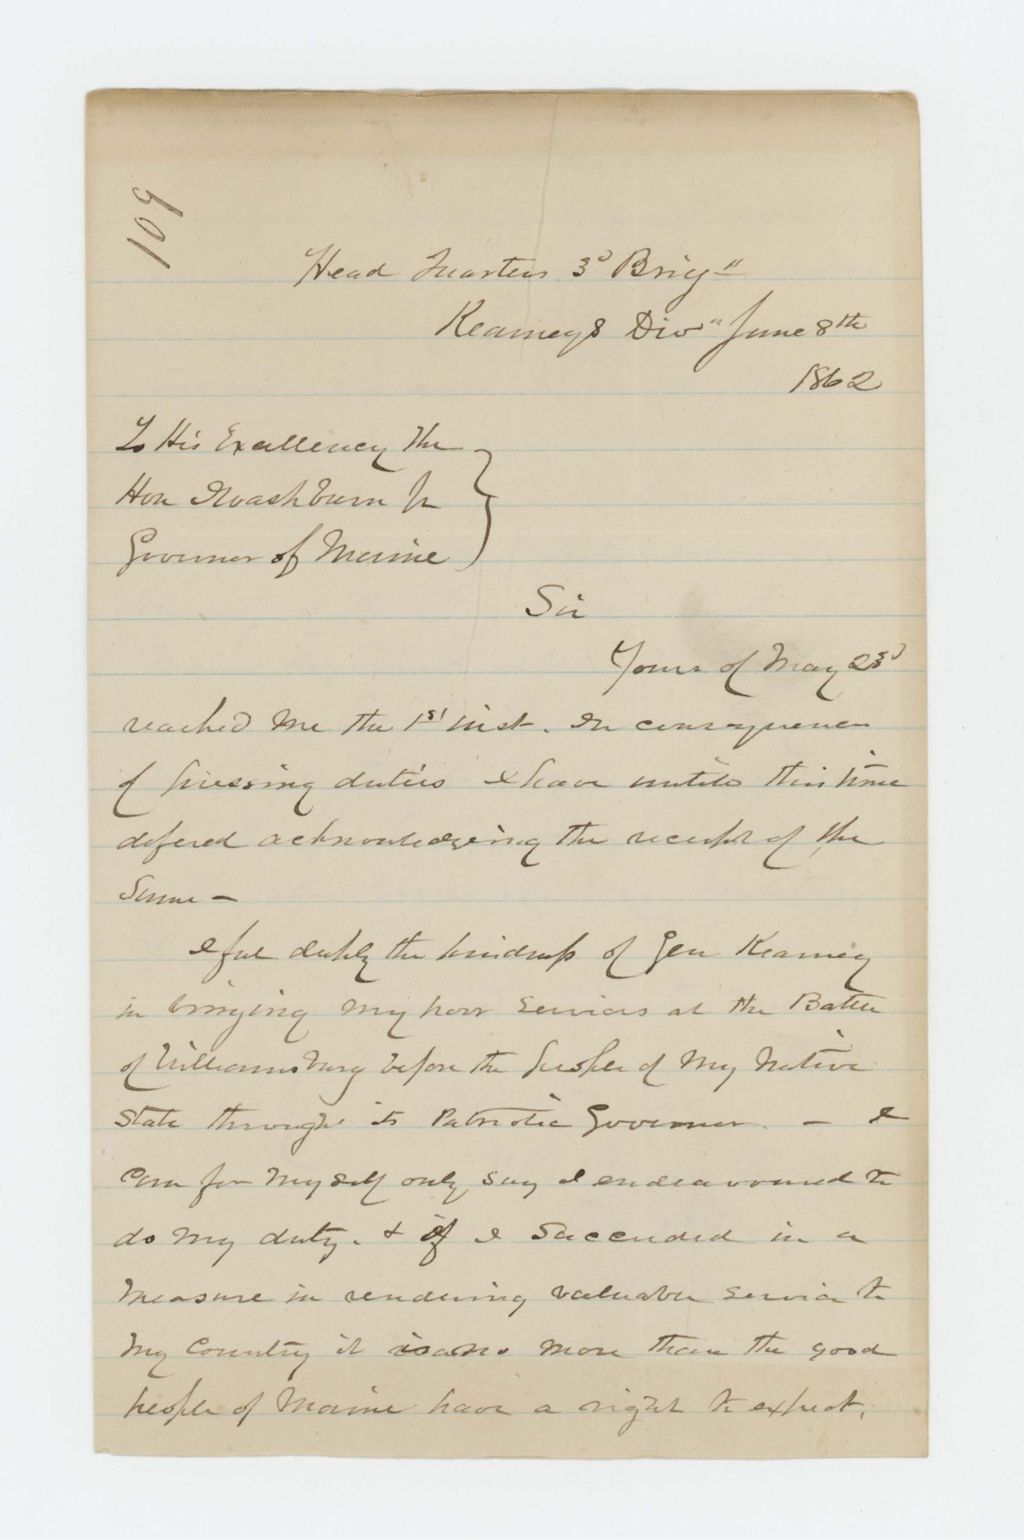 109
Head Quarters 3d Brig"
Kearneys Div" June 8th
1862
To His Excellency The
Hon I Washburn Jr
Governor of Maine
Sir
Yours of May 23d
reached me the 1st inst. In consequence
of pressing duties I have untill this time
defered acknowledgeing the receipt of the
Same –
I feel deeply the kindness of Gen Kearney
in bringing my poor services at the Battle
of Williamsburg before the people of My Native
State through its Patriotic Governor. – I
Can for Myself only say I endeavoured to
do my duty. & if I Succeeded in a
Measure in rendering valuable service to
My Country it is no more than the good
people of Maine have a right to expect.